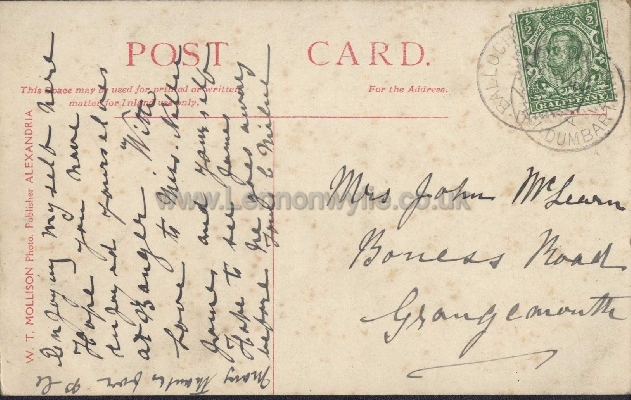 POST CARD.
This Space may be used for printed or written
matter for Inland use only.
For the Address.
W. T. MOLLISON Photo. Publisher ALEXANDRIA
Enjoying myself here
Hope you have
enjoyed yourselves
at Banger With
Love to Mrs.
James and yourself
Hope to see James
before he goes away
Many Thanks for P. C.
Mrs John McLearn
Boness Road
Grangemouth
BALLOCH
DUMBAR
www.Lennonwylie.co.uk